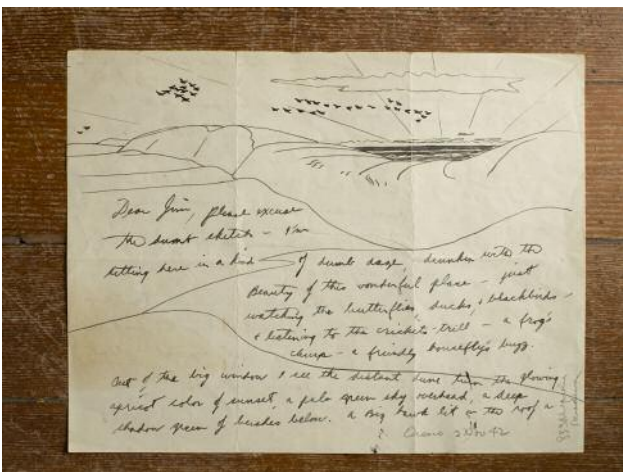 Dear Jim, please excuse
the dumb sketch - I'm
sitting here in a kind of dumb daze, drunken with the
Beauty of this wonderful place - just
watching the butterflies, ducks, & blackbirds -
& listening to the crickets trill - a frog's
chirp - a friendly housefly's buzz.
Out of the big window I see the distant dune turn the glowing
apricot color of sunset, a pale green sky overhead, a deep
shadow green of bushes below. a Big hawk lit on the roof a
Oceano 2 Nov 42